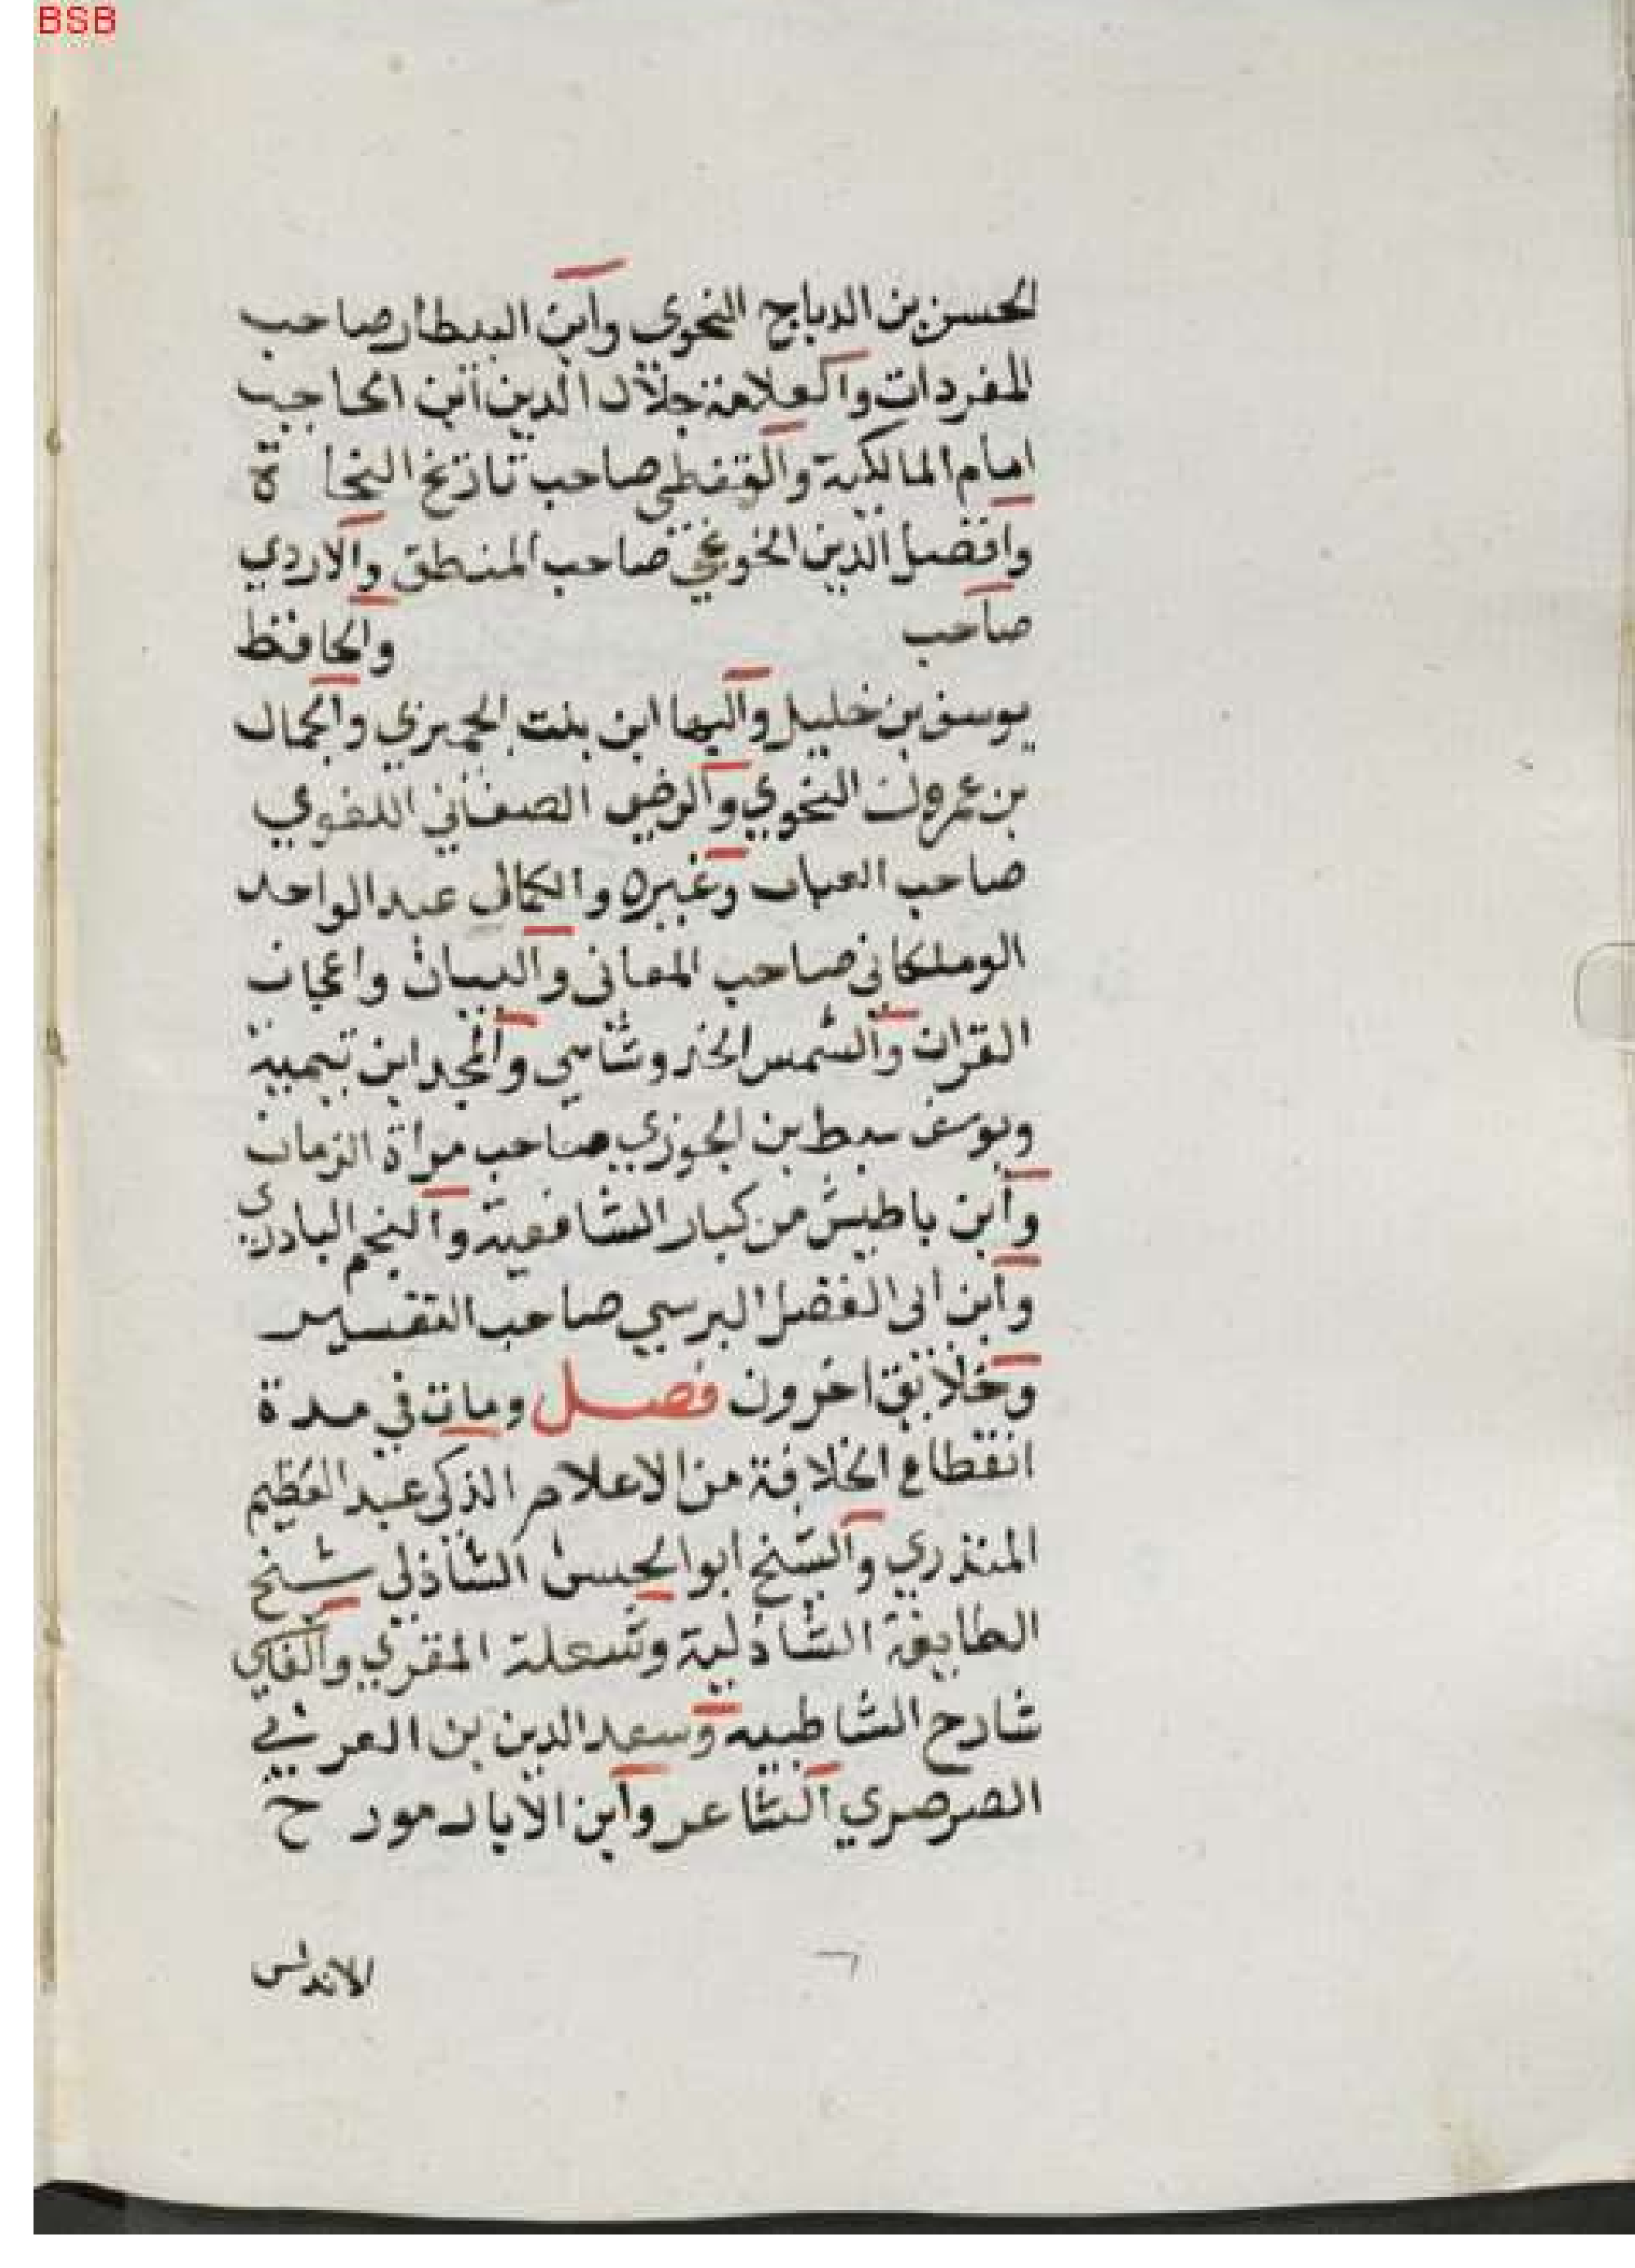 BSB
الحسن بن الدباج النحوي وابن البيطار صاحب
المفردات والعلامة جلال الدين ابن الحاجب
امام المالكية والقفطى صاحب تاريخ النحا ة
وافضل الدين الخونجي صاحب المنطق والاردي
صاحب والحافظ
يوسف بن خليل والبها ابن بنت الجميزي والجمال
بن عمرون النحوي والرضي الصغاني اللغوي
صاحب العباب وغيره والكمال عبد الواحد
الوملكانى صاحب المعانى والبيان واعجان
القران والشمس الخذروشاهي والمجد ابن تيمية
ويوسف سبط بن الجوزي صاحب مراة الزمان
وابن باطيش من كبار الشافعية والنجم البادري
وابن ابى الفضل البرسي صاحب التفسير
وخلايق اخرون فصل ومات في مدة
انقطاع الخلافة من الاعلام الذكى عبد العظيم
المنذري والشيخ ابوا الحسن الشاذلى شيخ
الطايفة الشاذلية وشعلة المقري والفاسي
شارح الشاطبيه وسعد الدين بن العربي
الصرصري الشاعر وابن الابار مور خ
الاندلس